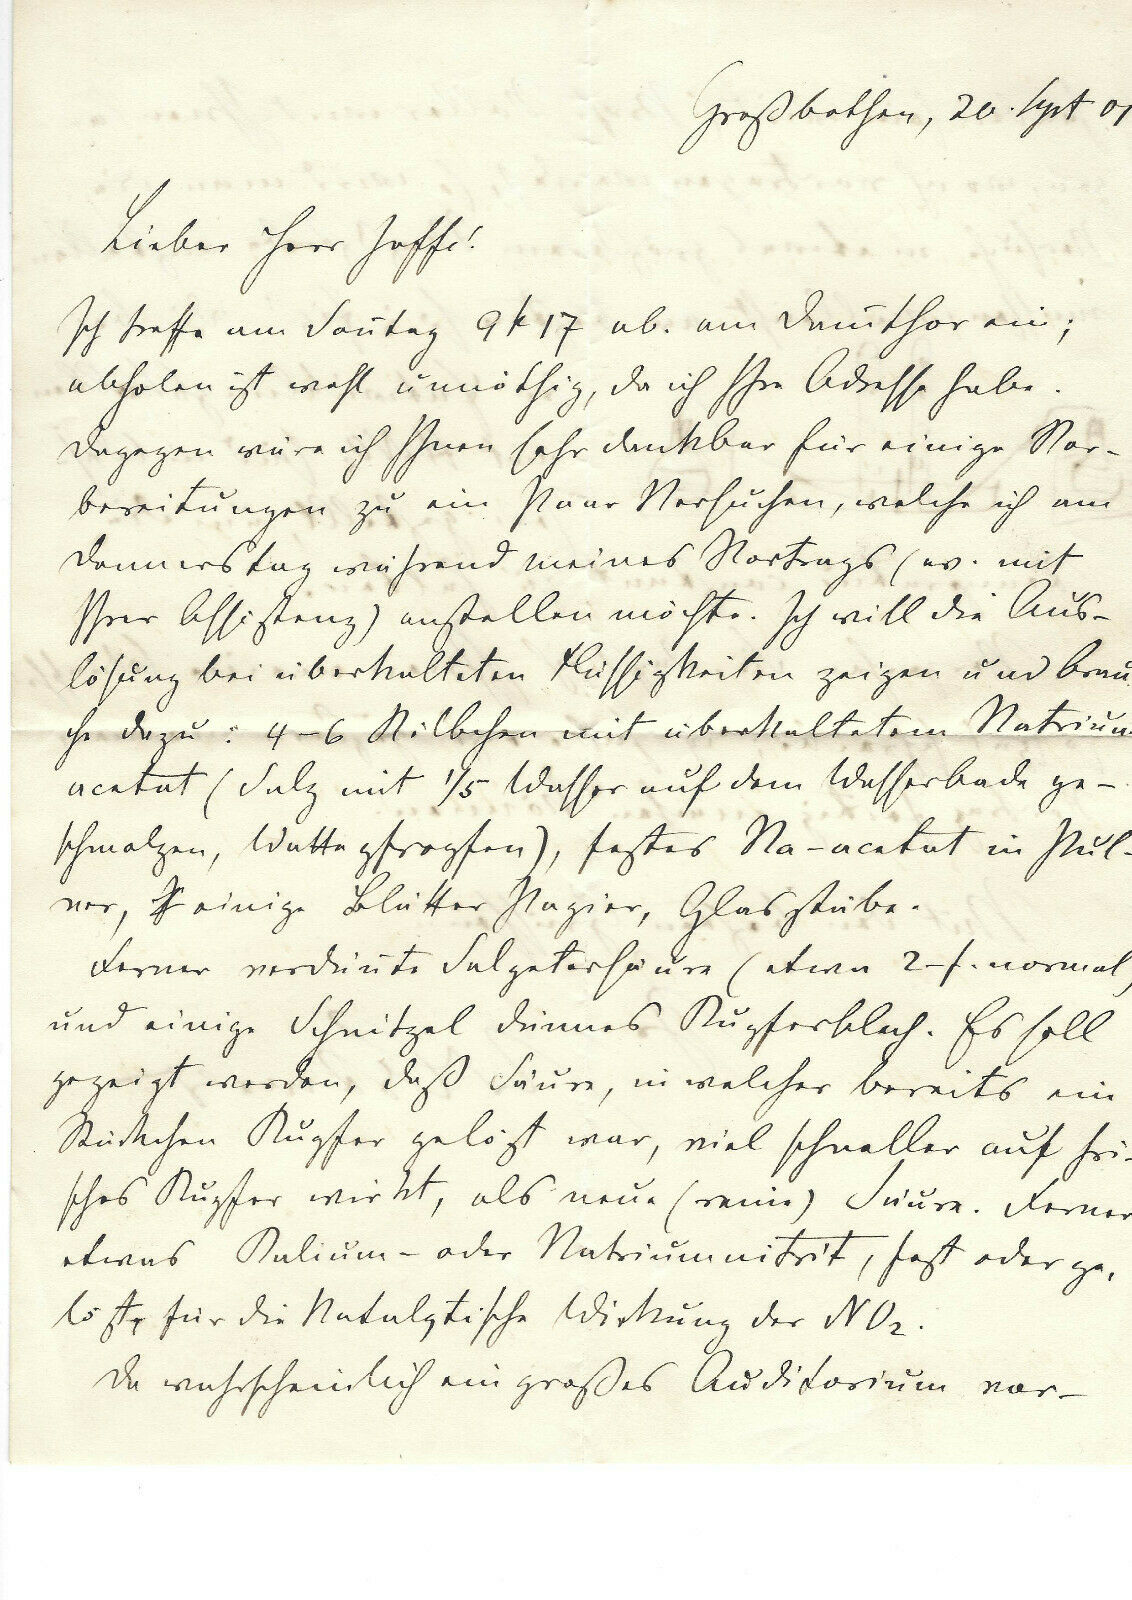 Großbothen, 20. Sept 01
Lieber Herr Joffe!
Ich treffe am Sontag 9h 17 ab. am Damthor ein;
abholen ist wohl unnöthig, da ich Ihre Adresse habe.
Dagegen wäre ich Ihnen sehr dankbar für einige Vor-
bereitungen zu ein Paar Versuchen, welche ich am
Donnerstag während meines Vortrags (ev. mit
Ihrer Assistenz) anstellen möchte. Ich will die Aus-
lösung bei überkalteten Flüssigkeiten zeigen und brau
che dazu: 4-6 Kölbchen mit überkaltetem Natrium
acetat (Salz mit 1/5 Wasser auf dem Wasserbade ge-
schmolzen, Wattepfropfen), festes Na-acetat in Pul-
ver, einige Blätter Papier, Glasstäbe.
Ferner verdünte Salpetersäure (etwa 2-f. normal)
und einige Schnitzel dünnes Kupferblech. Es soll
gezeigt werden, daß Säure, in welcher bereits ein
Stückchen Kupfer gelöst war, viel schneller auf fri-
sches Kupfer wirkt, als neue (reine) Säure. Ferner
etwas Kalium- oder Natriumnitrit, fest oder ge-
löst, für die katalytische Wirkung der NO2.
Da wahrscheinlich ein großes Auditorium vor-